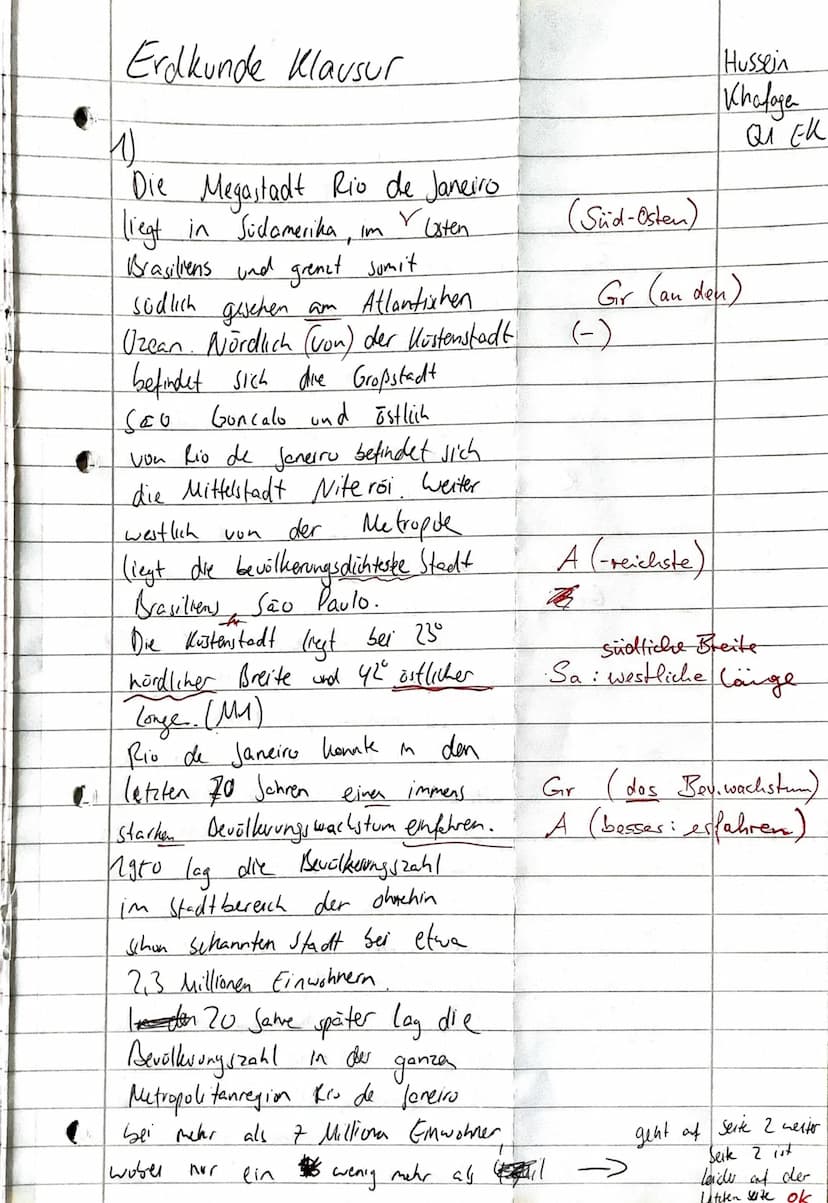 Erdkunde Klausur
Hussein
Khafaga
Q1 EK
1)
Die Megastadt Rio de Janeiro
liegt in Südamerika, im Osten (Süd-Osten)
Brasiliens und grenzt somit
südlich gesehen am Atlantischen Gr (an den)
Ozean. Nördlich (von) der Küstenstadt (-)
befindet sich die Großstadt
São Goncalo und östlich
von Rio de Janeiro befindet sich
die Mittelstadt Niterói. Weiter
westlich von der Metropole
liegt die bevölkerungsdichteste Stadt A (-reichste)
Brasiliens São Paulo.
Die Küstenstadt liegt bei 23° südliche Breite
nördlicher Breite und 42° östlicher Sa: westliche Länge
Länge. (M1)
Rio de Janeiro konnte in den
letzten 70 Jahren einen immens Gr (das Bev.wachstum)
starken Bevölkerungswachstum einfahren. A (besser: erfahren)
1950 lag die Bevölkerungszahl
im Stadtbereich der ohnehin
schon bekannten Stadt bei etwa
2,3 Millionen Einwohnern.
20 Jahre später lag die
Bevölkerungszahl in der ganzen
Metropolitanregion Rio de Janeiro
bei mehr als 7 Millionen Einwohner,
wobei nur ein wenig mehr als
geht auf Seite 2 weiter
Seite 2 ist
leider auf der
letzten Seite ok